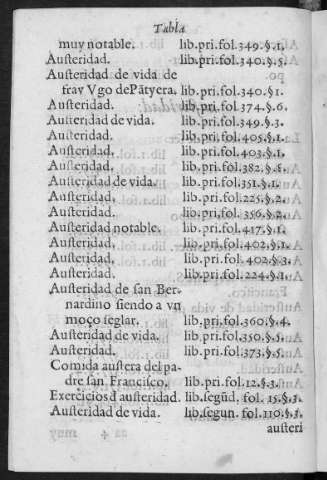 Tabla
muy notable. lib.pri.fol.349.§.1.
Austeridad. lib.pri.fol.340.§.5.
Austeridad de vida de
fray Vgo de Pātyera. lib.pri.fol.340.§1.
Austeridad. lib.pri.fol.374.§.6.
Austeridad de vida. lib.pri.fol.349.§.3.
Austeridad. lib.pri.fol.405.§.1.
Austeridad. lib.pri.fol.403.§.1.
Austeridad. lib.pri.fol.382.§.8.
Austeridad de vida. lib.pri.fol.351.§.1.
Austeridad. lib.pri.fol.225.§.2.
Austeridad. lib.pri.fol.356.§.2.
Austeridad notable. lib.pri.fol.417.§.1.
Austeridad. lib.pri.fol.402.§.1.
Austeridad. lib.pri.fol.402.§.3.
Austeridad. lib.pri.fol.224.§.1.
Austeridad de san Ber-
nardino siendo a vn
moço seglar. lib.pri.fol.360.§.4.
Austeridad de vida. lib.pri.fol.350.§.5.
Austeridad. lib.pri.fol.373.§.5.
Comida austera del pa-
dre san Francisco. lib.pri.fol.12.§.3.
Exercicios d austeridad. lib.segūd. fol. 15.§.3.
Austeridad de vida. lib.segun. fol.110.§.3.
austeri